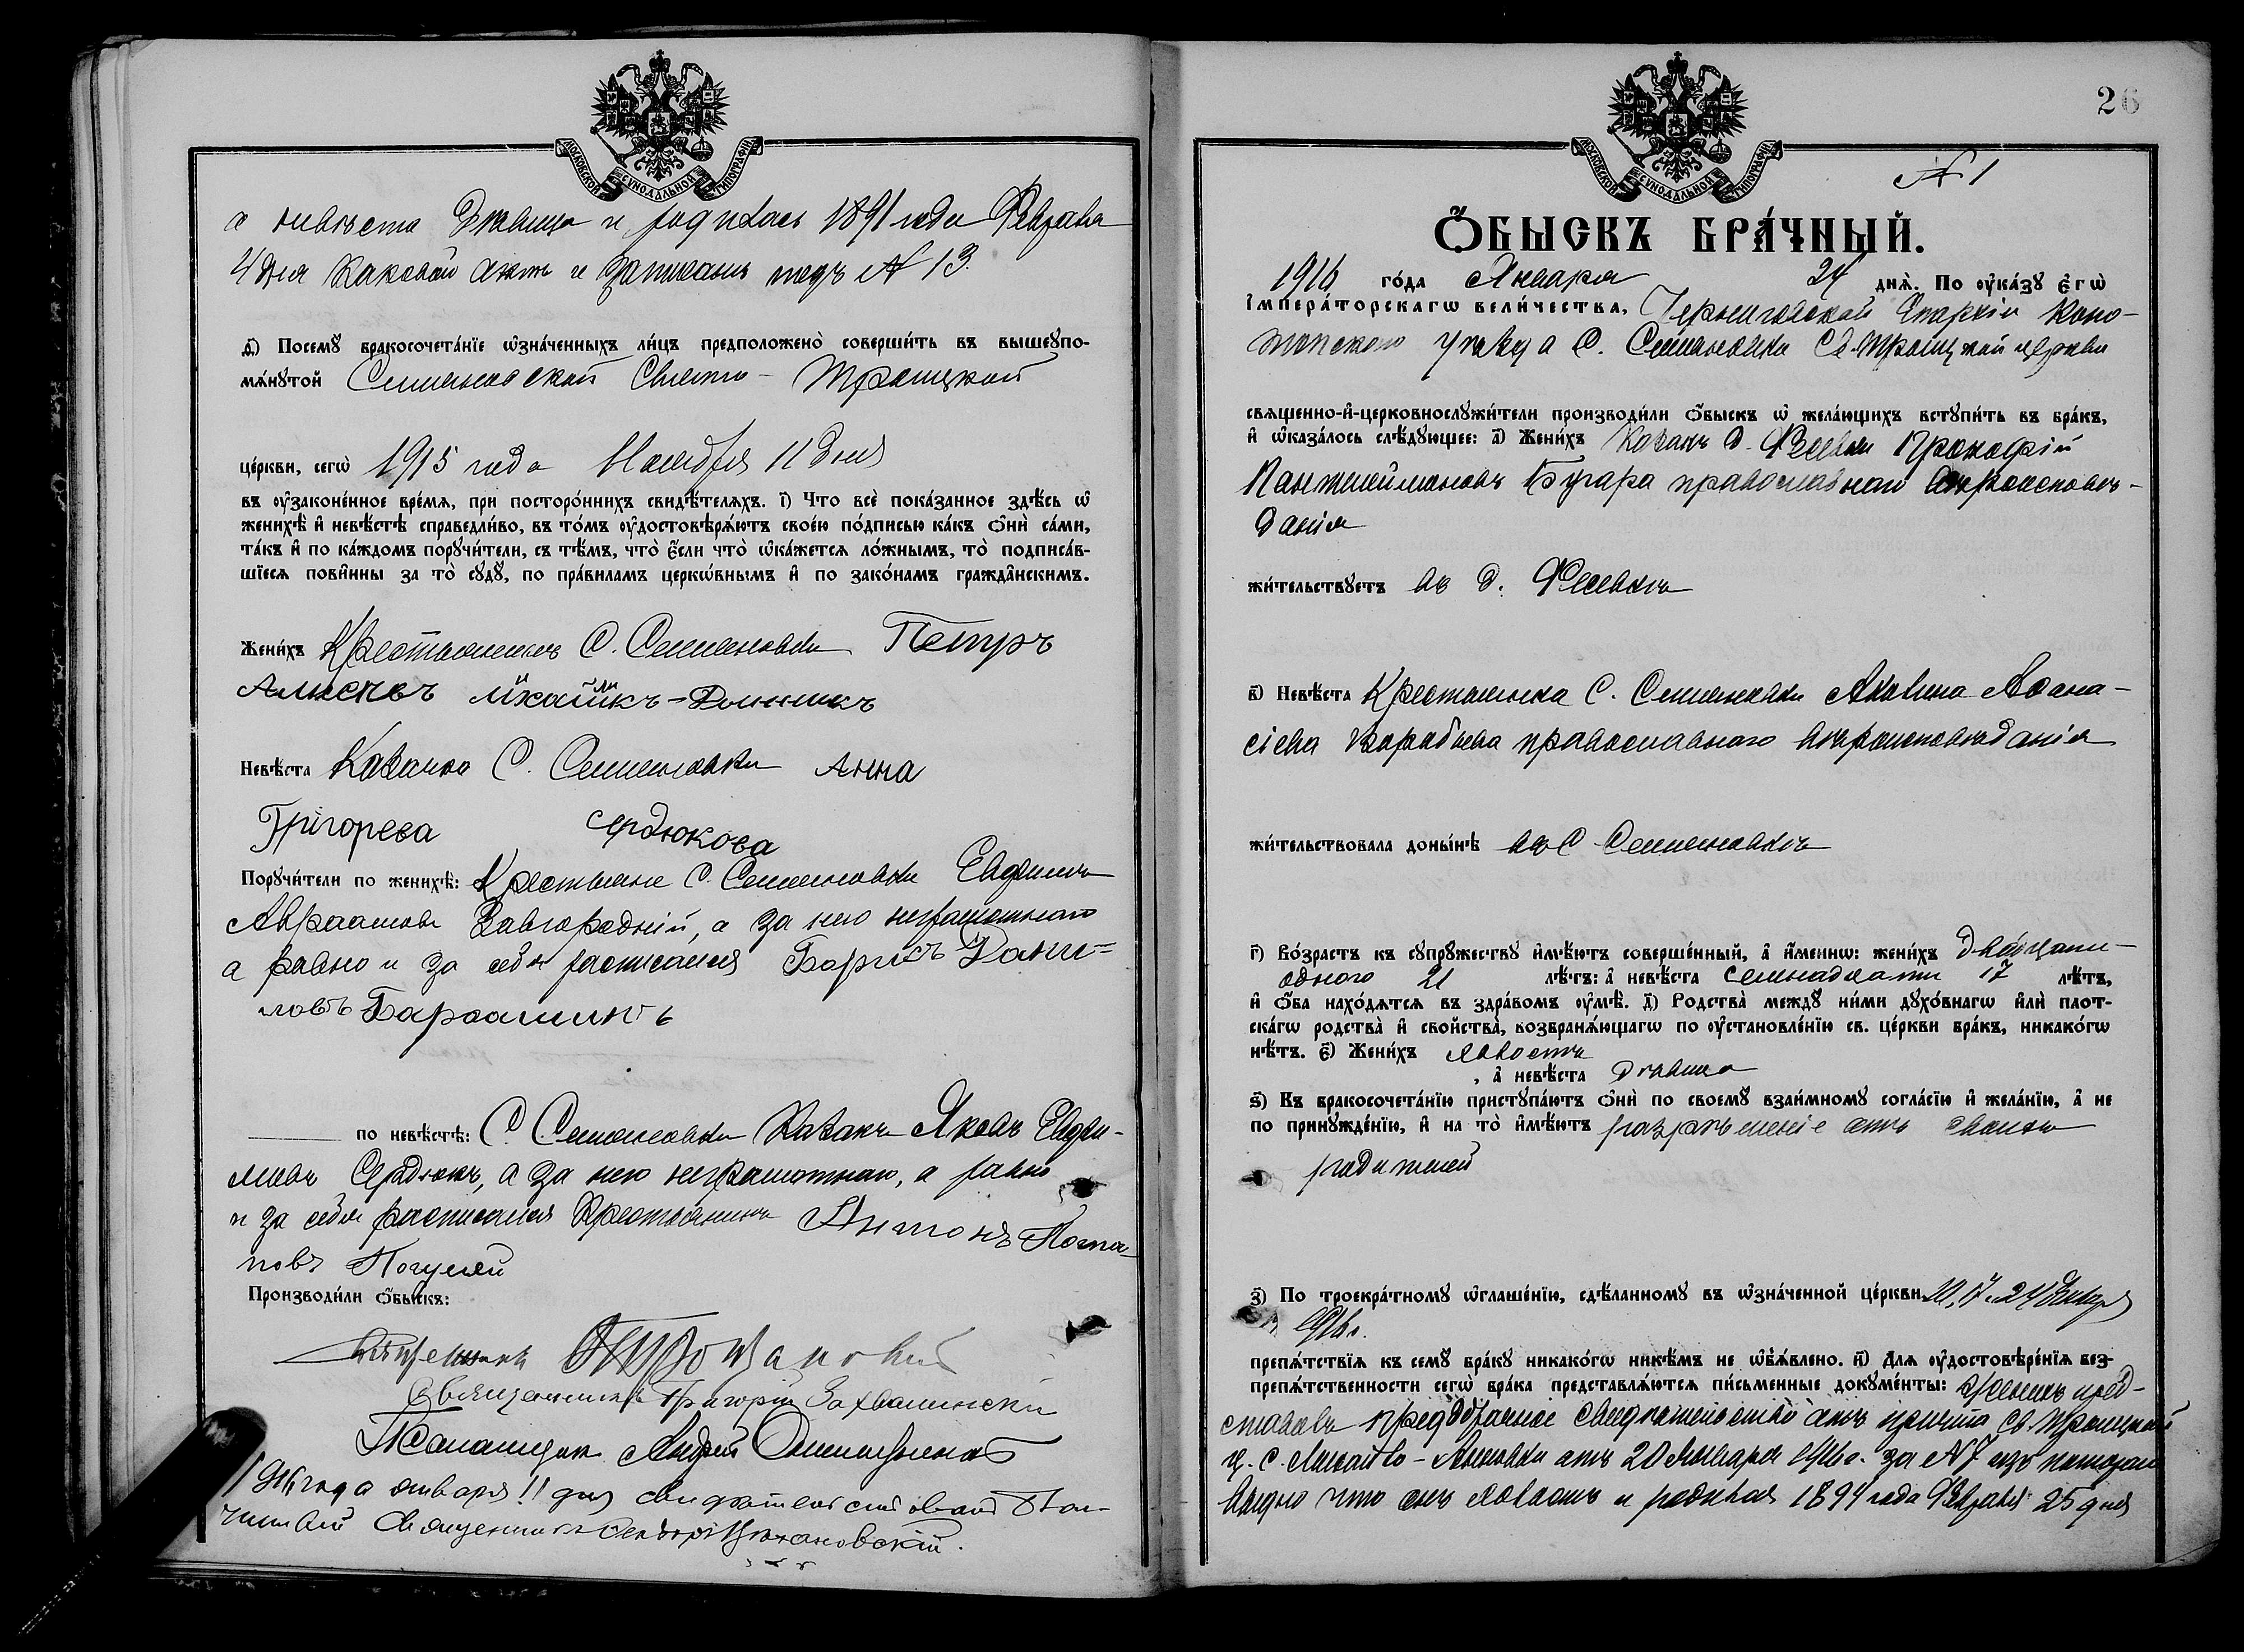 МОСКОВСКОЙ СѴНОДАЛЬНОЙ ТИПОГРАФІИ
а невѣста Дѣвица и родилась 1891 года Февраля
4 дня каковой актъ и записанъ подъ № 13.
ѳ҃) Посемꙋ̀ бракосочета́нїе ѡ҆зна́ченныхъ ли́цъ предположено̀ соверши́ть въ вышеꙋпо-
мѧ́нꙋтой Семеновской Свято-Троицкой
це́ркви, сегѡ̀ 1915 года Ноября 11 дня
въ ᲂу҆законе́нное вре́мѧ, при посторо́ннихъ свидѣ́телѧхъ. і҃) Что всѐ пока́занное здѣ́сь ѡ҆
женихѣ̀ и҆ невѣ́стѣ справедли́во, въ то́мъ ᲂу҆достовѣрѧ́ютъ свое́ю по́дписью ка́къ ѻ҆нѝ са́ми,
та́къ и҆ по ка́ждомъ порꙋчи́тели, съ тѣ́мъ, что̀ є҆́сли что̀ ѡ҆ка́жетсѧ ло́жнымъ, то̀ подписа́в-
шїесѧ пови́нны за то̀ сꙋдꙋ̀, по пра́виламъ церкѡ́внымъ и҆ по зако́намъ гражда́нскимъ.
Жени́хъ Крестьянинъ С. Семеновки Петръ
Невѣ́ста Казачка С. Семеновки Анна
Григорева Сердюкова
Порꙋчи́тели по женихѣ̀: Крестьяне С. Семеновки Евфимъ
Авраамовъ Завгородній, а за него неграмотнаго
а равно и за себя росписался Борисъ Дани=
ловъ
по невѣ́стѣ: С. Семеновки Казакъ Яковъ Евфи-
мовъ Сердюкъ, а за него неграмотнаго, а равно
и за себя росписался Крестьянинъ Антонъ Пота-
повъ
Производи́ли ѻ҆́быскъ:
Священникъ
Священникъ Григорій
Псаломщик Андрей
1916 года января 11 дня свидѣтельствовалъ Благо-
чинный Священникъ
26
МОСКОВСКОЙ СѴНОДАЛЬНОЙ ТИПОГРАФІИ
№ 1
Ѻ҆́БЫСКЪ БРА́ЧНЫЙ.
1916 го́да Января 24 днѧ̀. По ᲂу҆ка́зꙋ є҆гѡ̀
і҆мпера́торскагѡ вели́чества, Черниговской Епархіи Коно-
топскаго уѣзда С. Семеновки Св-Троицкой церкви
свѧщенно-и҆-церковнослꙋжи́тели производи́ли ѻ҆́быскъ ѡ҆ жела́ющихъ встꙋпи́ть въ бра́къ,
и҆ ѡ҆каза́лось слѣ́дꙋющее: а҃) Жени́хъ Казакъ д. Фесевки Прокофій
Пантелеймоновъ Бугара православнаго вѣроисповѣ-
данія
жи́тельствꙋетъ въ д. Фесевкѣ
в҃) Невѣ́ста Крестьянка С. Семеновки Акилина Аѳана-
сіева Воробьева православнаго вѣроисповѣданія
жи́тельствовала доны́нѣ въ С Семеновкѣ
г҃) Во́зрастъ къ сꙋпрꙋ́жествꙋ и҆мѣ́ютъ соверше́нный, а҆ и҆́меннѡ: жени́хъ двадцати-
одного 21 лѣ́тъ: а҆ невѣ́ста семнадцати 17 лѣ́тъ,
и҆ ѻ҆́ба нахо́дѧтсѧ въ здра́вомъ ᲂу҆мѣ̀. д҃) Родства̀ междꙋ̀ ни́ми дꙋхо́внагѡ и҆лѝ плот-
ска́гѡ родства̀ и҆ свойства̀, возбранѧ́ющагѡ по ᲂу҆становле́нїю св. це́ркви бра́къ, никако́гѡ
нѣ́тъ. є҃) Жени́хъ Холостъ
, а҆ невѣ́ста Дѣвица
ѕ҃) Къ бракосочета́нїю пристꙋпа́ютъ ѻ҆нѝ по своемꙋ̀ взаи́мномꙋ согла́сїю и҆ жела́нїю, а҆ не
по принꙋжде́нїю, и҆ на то̀ и҆мѣ́ютъ разрѣшеніе отъ своихъ
родителей
з҃) По троекра́тномꙋ ѡ҆глаше́нїю, сдѣ́ланномꙋ въ ѡ҆зна́ченной це́ркви 10, 17 и 24 Января
1916 г.
препѧ́тствїѧ къ семꙋ̀ бра́кꙋ никако́гѡ никѣ́мъ не ѡ҆б̾ѧ́влено. и҃) Для ᲂу҆достовѣре́нїѧ без-
препѧ́тственности сегѡ̀ бра́ка представлѧ́ютсѧ пи́сьменные докꙋме́нты: Женихъ пред-
ставилъ предбрачное свидѣтельство отъ причта Св.-Троицкой
ц. с. отъ 20 Января 1916 г. за № 7 изъ котораго
видно что онъ холостъ и родился 1894 года Февраля 25 дня